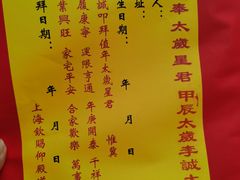 奉太歲星君 甲辰太歲李誠大
人：
生日期： 年 月 日
誠叩拜值年太歲星君 惟冀
履康寧 運限亨通 年庚開泰 千祥
業興旺 家宅平安 合家歡樂 萬事
拜日期： 年 月 日
上海欽賜仰殿道